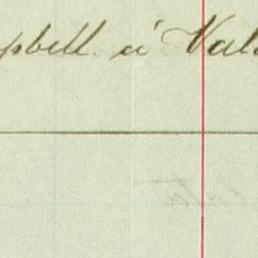 pbell à Val